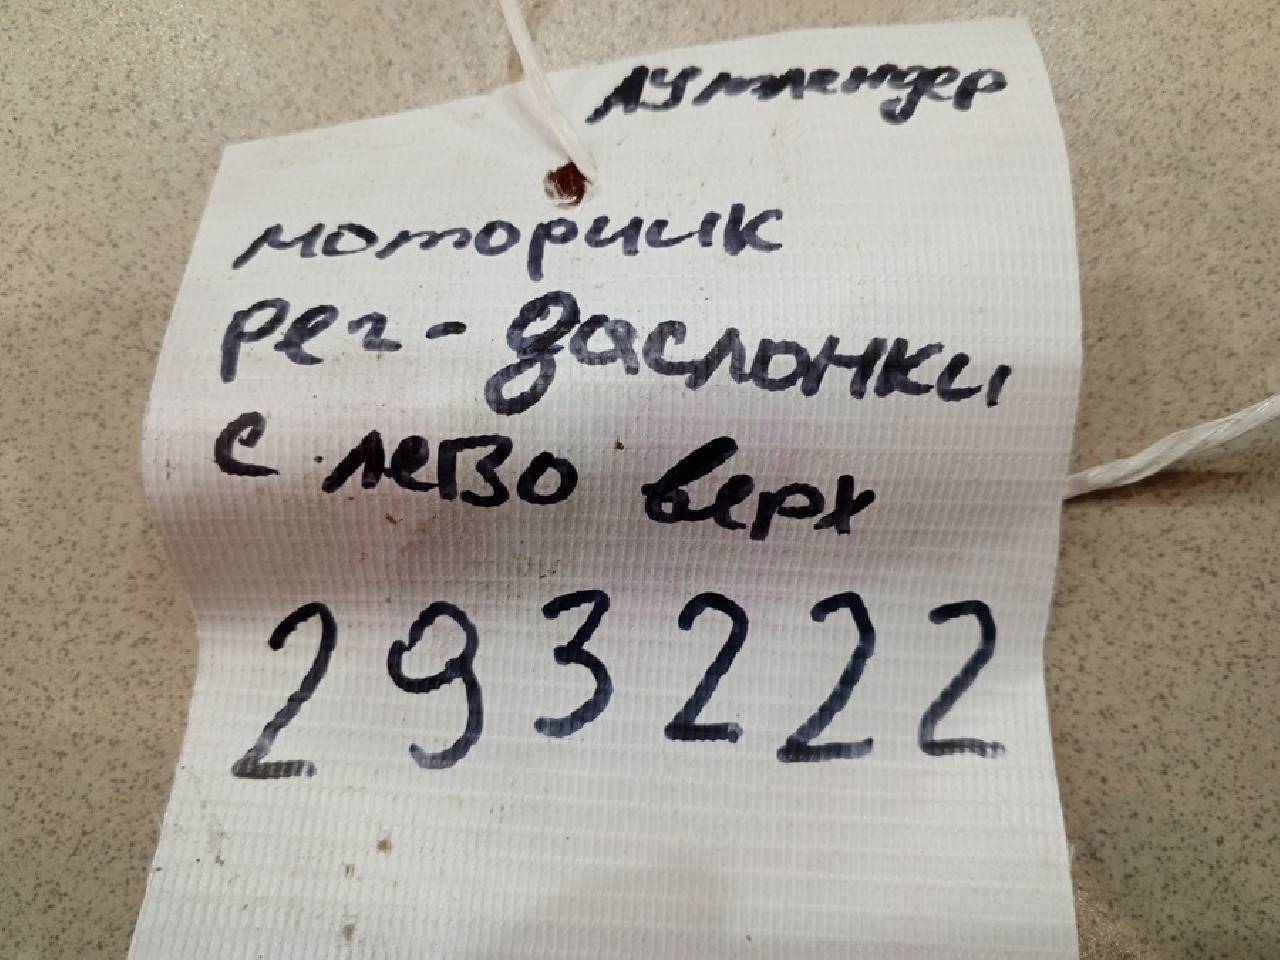 Аутлендер
моторчик
рег- даслонки
с лево верх
293222